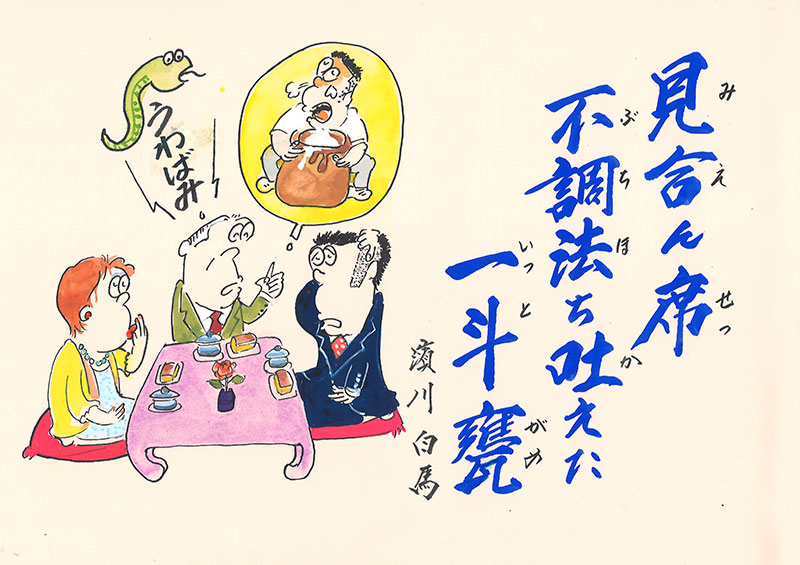 見合ん席
みえせっ
不調法ち吐えた
ぶちほか
一斗甕
いっとがめ
濱川白馬
うわばみ